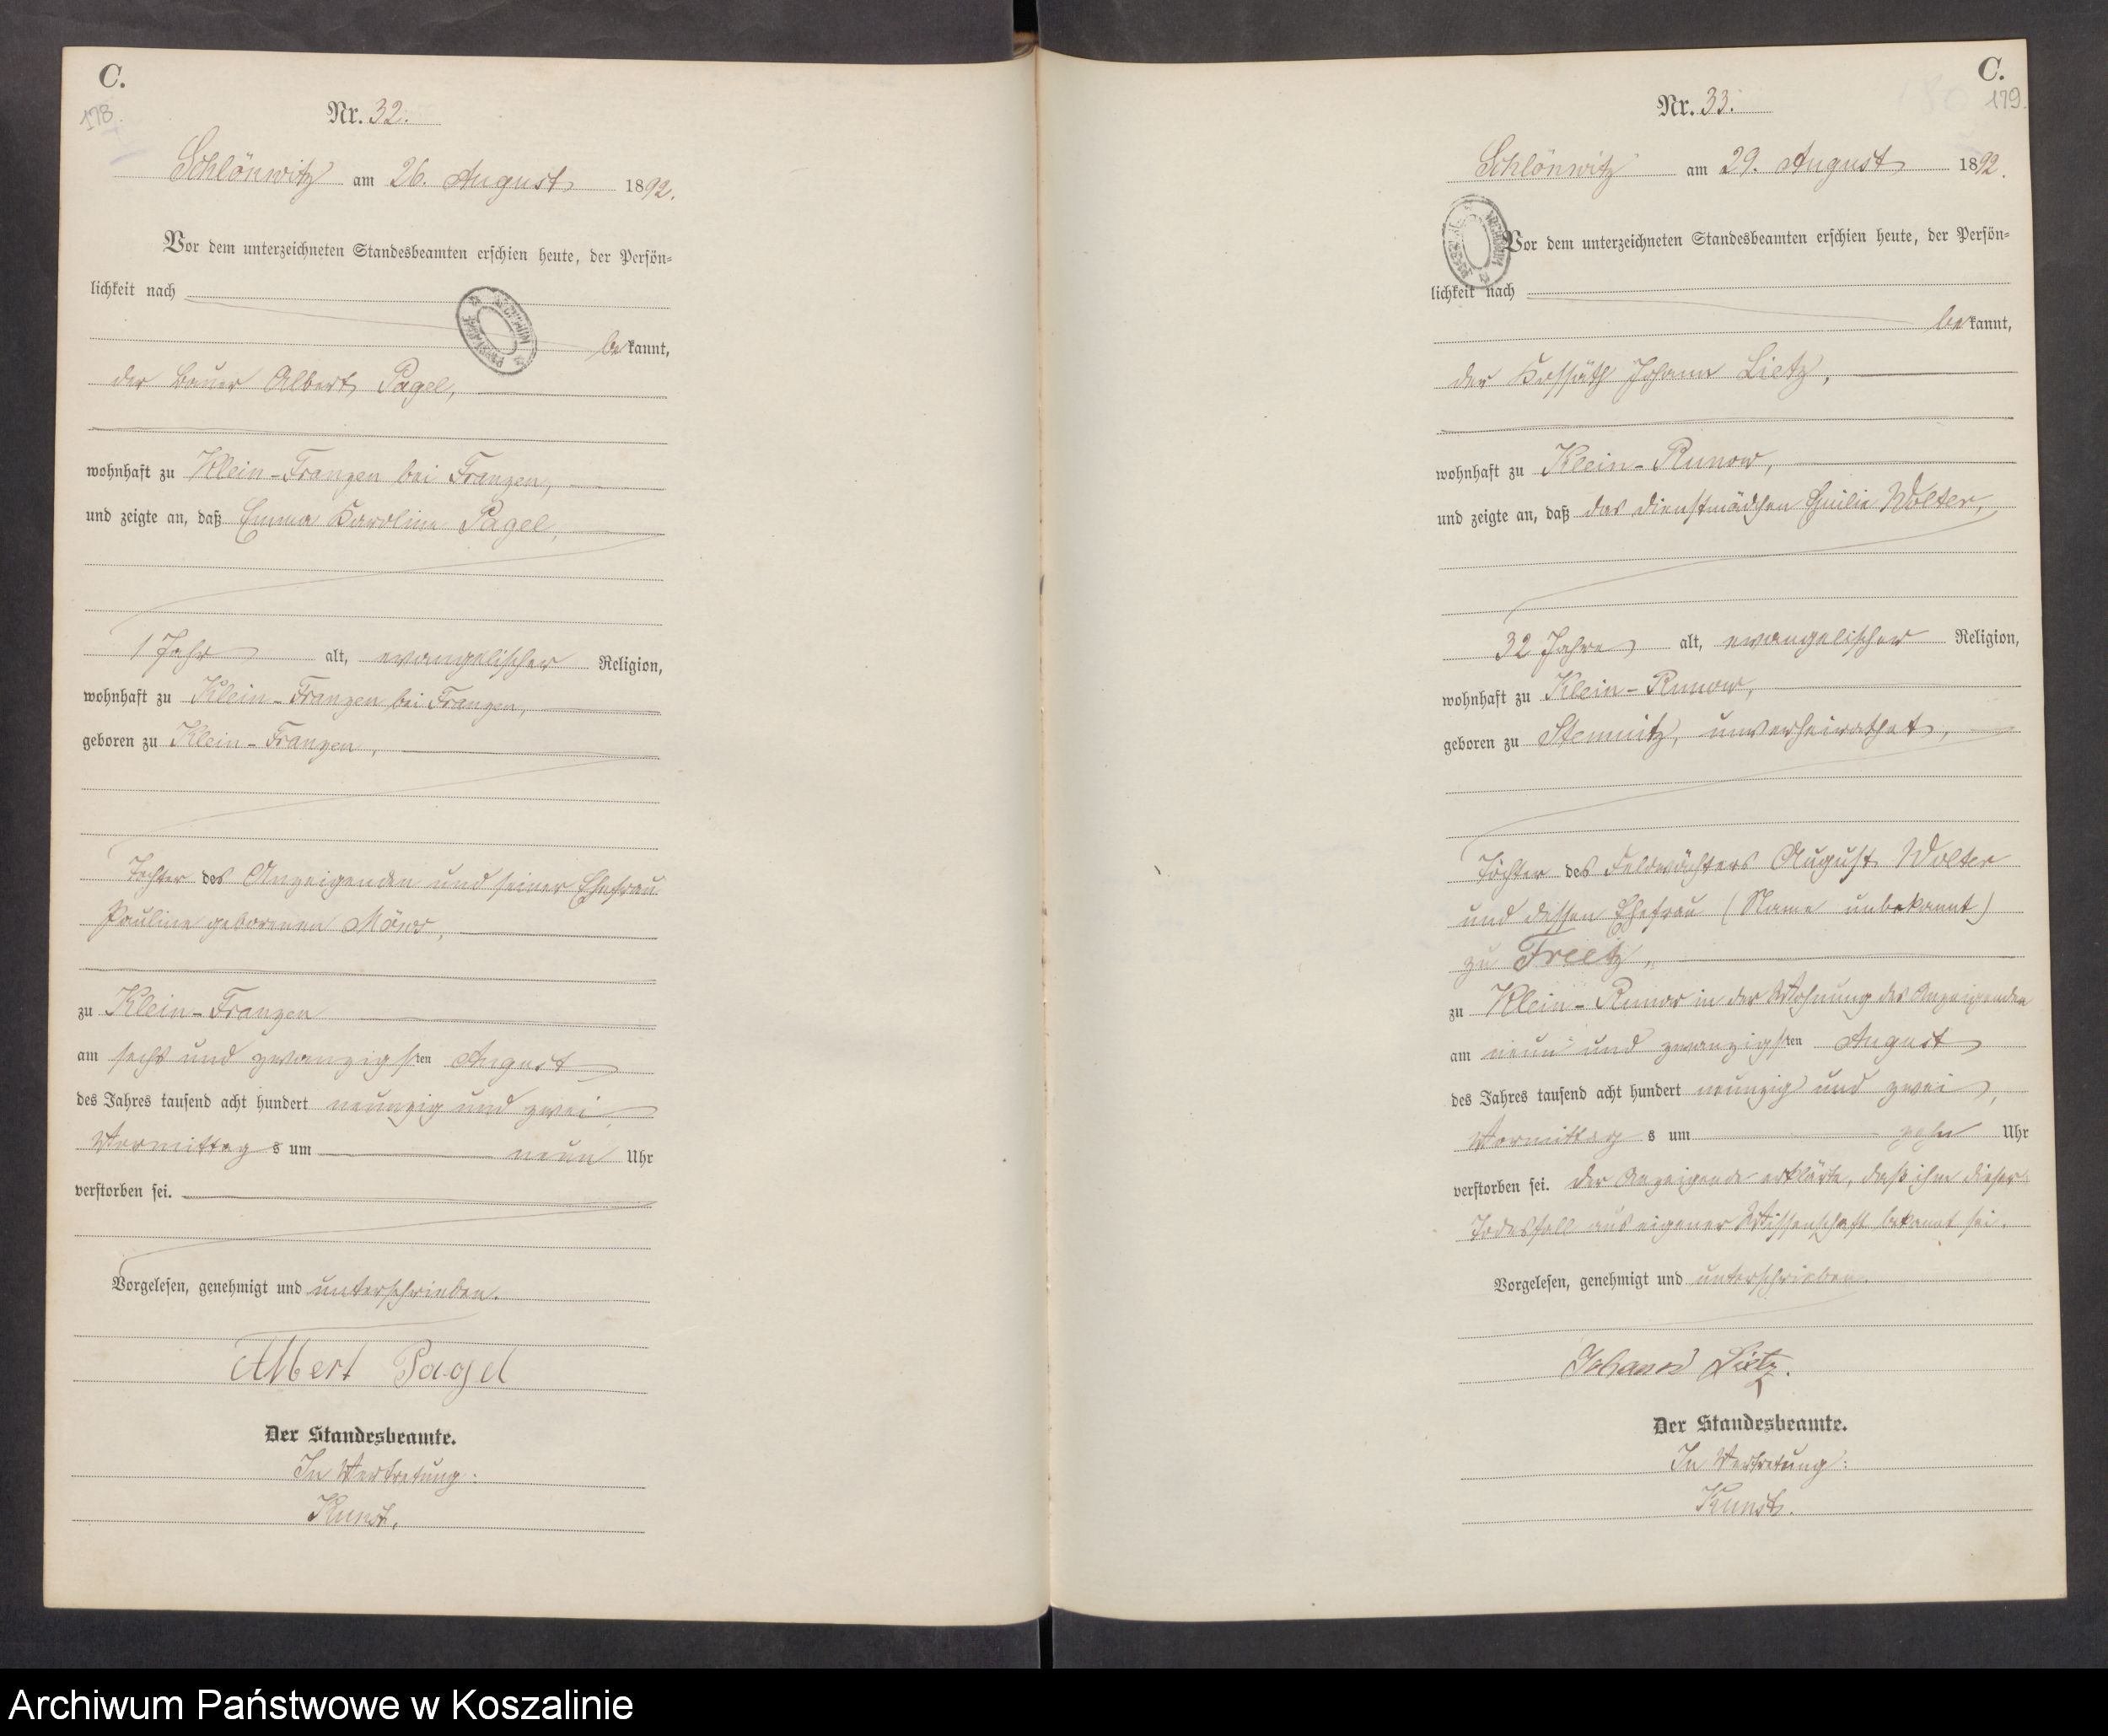 C.
178.
Nr. 32.
Schlönwitz am 26. August 1892.
Vor dem unterzeichneten Standesbeamten erschien heute, der Persön-
lichkeit nach
bekannt,
der Bauer Albert Pagel,
wohnhaft zu Klein-Franzen bei Franzen,
und zeigte an, daß Emma Karoline Pagel,
1 Jahr alt, evangelischer Religion,
wohnhaft zu Klein-Franzen bei Franzen,
geboren zu Klein-Franzen,
Tochter des Anzeigenden und seiner Ehefrau
Pauline geborenen
zu Klein-Franzen
am sechs und zwanzigsten August
des Jahres tausend acht hundert neunzig und zwei,
Vormittags um neun Uhr
verstorben sei.
Vorgelesen, genehmigt und unterschrieben.
Albert Pagel
Der Standesbeamte.
In Vertretung:
Kunst.
C.
179.
Nr. 33.
Schlönwitz am 29. August 1892.
Vor dem unterzeichneten Standesbeamten erschien heute, der Persön-
lichkeit nach
bekannt,
der Kossäth Johann Lietz,
wohnhaft zu Klein-Runow,
und zeigte an, daß das Dienstmädchen Emilie Wolter,
32 Jahre alt, evangelischer Religion,
wohnhaft zu Klein-Runow,
geboren zu Stemnitz, unverheirathet,
Tochter des Feldwächters August Wolter
und dessen Ehefrau (Name unbekannt)
zu Freetz,
zu Klein-Runow in der Wohnung des Anzeigenden
am neun und zwanzigsten August
des Jahres tausend acht hundert neunzig und zwei,
Vormittags um zehn Uhr
verstorben sei. Der Anzeigende erklärte, daß ihm dieser
Todesfall aus eigener Wissenschaft bekannt sei.
Vorgelesen, genehmigt und unterschrieben.
Johann Lietz.
Der Standesbeamte.
In Vertretung:
Kunst.
Archiwum Państwowe w Koszalinie